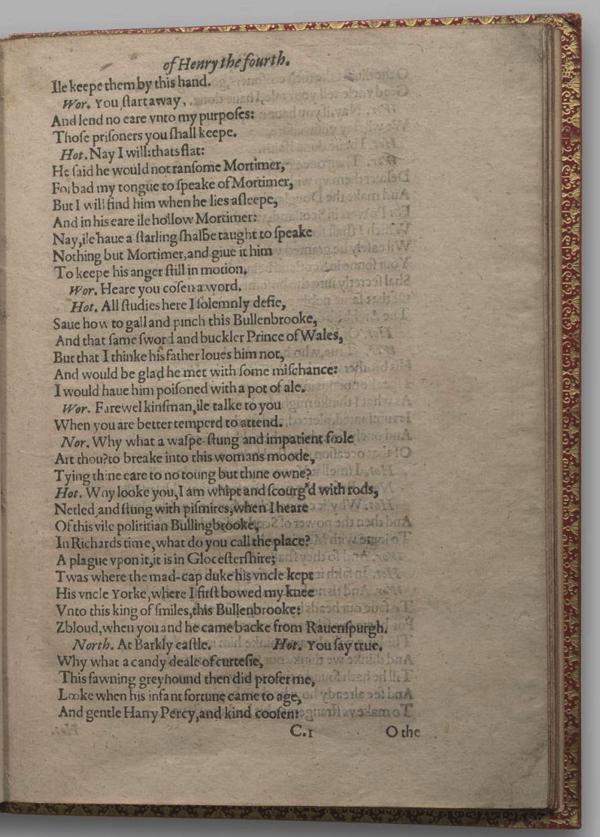 of Henry the fourth.
Ile keepe them by this hand.
Wor. You ſtart away,
And lend no eare vnto my purpoſes:
Thoſe priſoners you ſhall keepe.
Hot. Nay I will: thats flat:
He ſaid he would not ranſome Mortimer,
Forbad my tongue to ſpeake of Mortimer,
But I will find him when he lies aſleepe,
And in his eare ile hollow Mortimer:
Nay, ile haue a ſtarling ſhalbe taught to ſpeake
Nothing but Mortimer, and giue it him
To keepe his anger ſtill in motion.
Wor. Heare you coſen a word.
Hot. All ſtudies here I ſolemnly defie,
Saue how to gall and pinch this Bullenbrooke,
And that ſame ſword and buckler Prince of Wales,
But that I thinke his father loues him not,
And would be glad he met with ſome miſchance:
I would haue him poiſoned with a pot of ale.
Wor. Farewel kinſman, ile talke to you
When you are better temperd to attend.
Nor. Why what a waſpe-ſtung and impatient foole
Art thou? to breake into this womans moode,
Tying thine eare to no toung but thine owne?
Hot. Why looke you, I am whipt and ſcourg'd with rods,
Netled, and ſtung with piſmires, when I heare
Of this vile polititian Bullingbrooke,
In Richards time, what do you call the place?
A plague vpon it, it is in Gloceſterſhire;
Twas where the mad-cap duke his vncle kept
His vncle Yorke, where I firſt bowed my knee
Vnto this king of ſmiles, this Bullenbrooke:
Zbloud, when you and he came backe from Rauenſpurgh.
North. At Barkly caſtle. Hot. You ſay true.
Why what a candy deale of curteſie,
This fawning greyhound then did profer me,
Looke when his infant fortune came to age,
And gentle Harry Percy, and kind cooſen:
C.1 O the